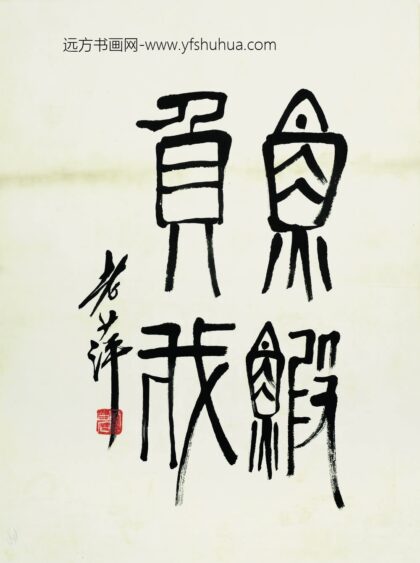 远方书画网-www.yfshuhua.com
魚鰕
負我
老萍